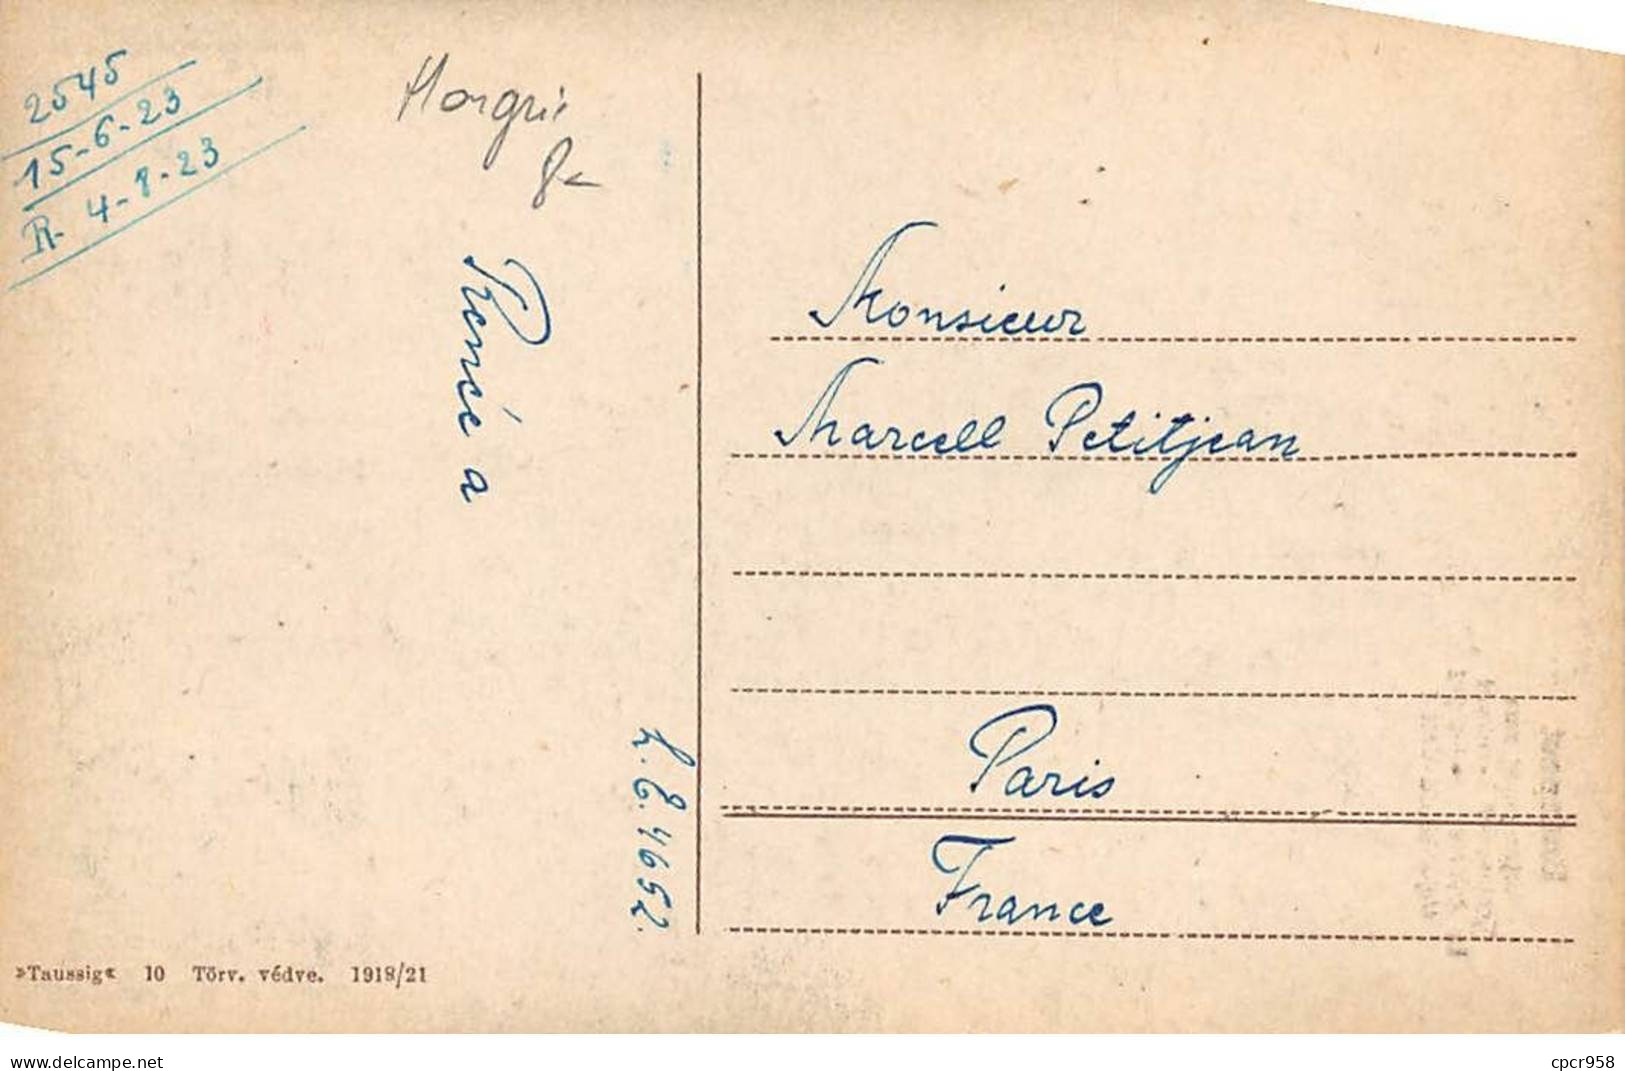 2545
15-6-23
R. 4-8-23
Hongrie
8
Monsieur
Marcell Petitjean
Paris
France
L.E. 4652.
»Taussig« 10 Törv. védve. 1918/21
www.delcampe.net
cpcr958